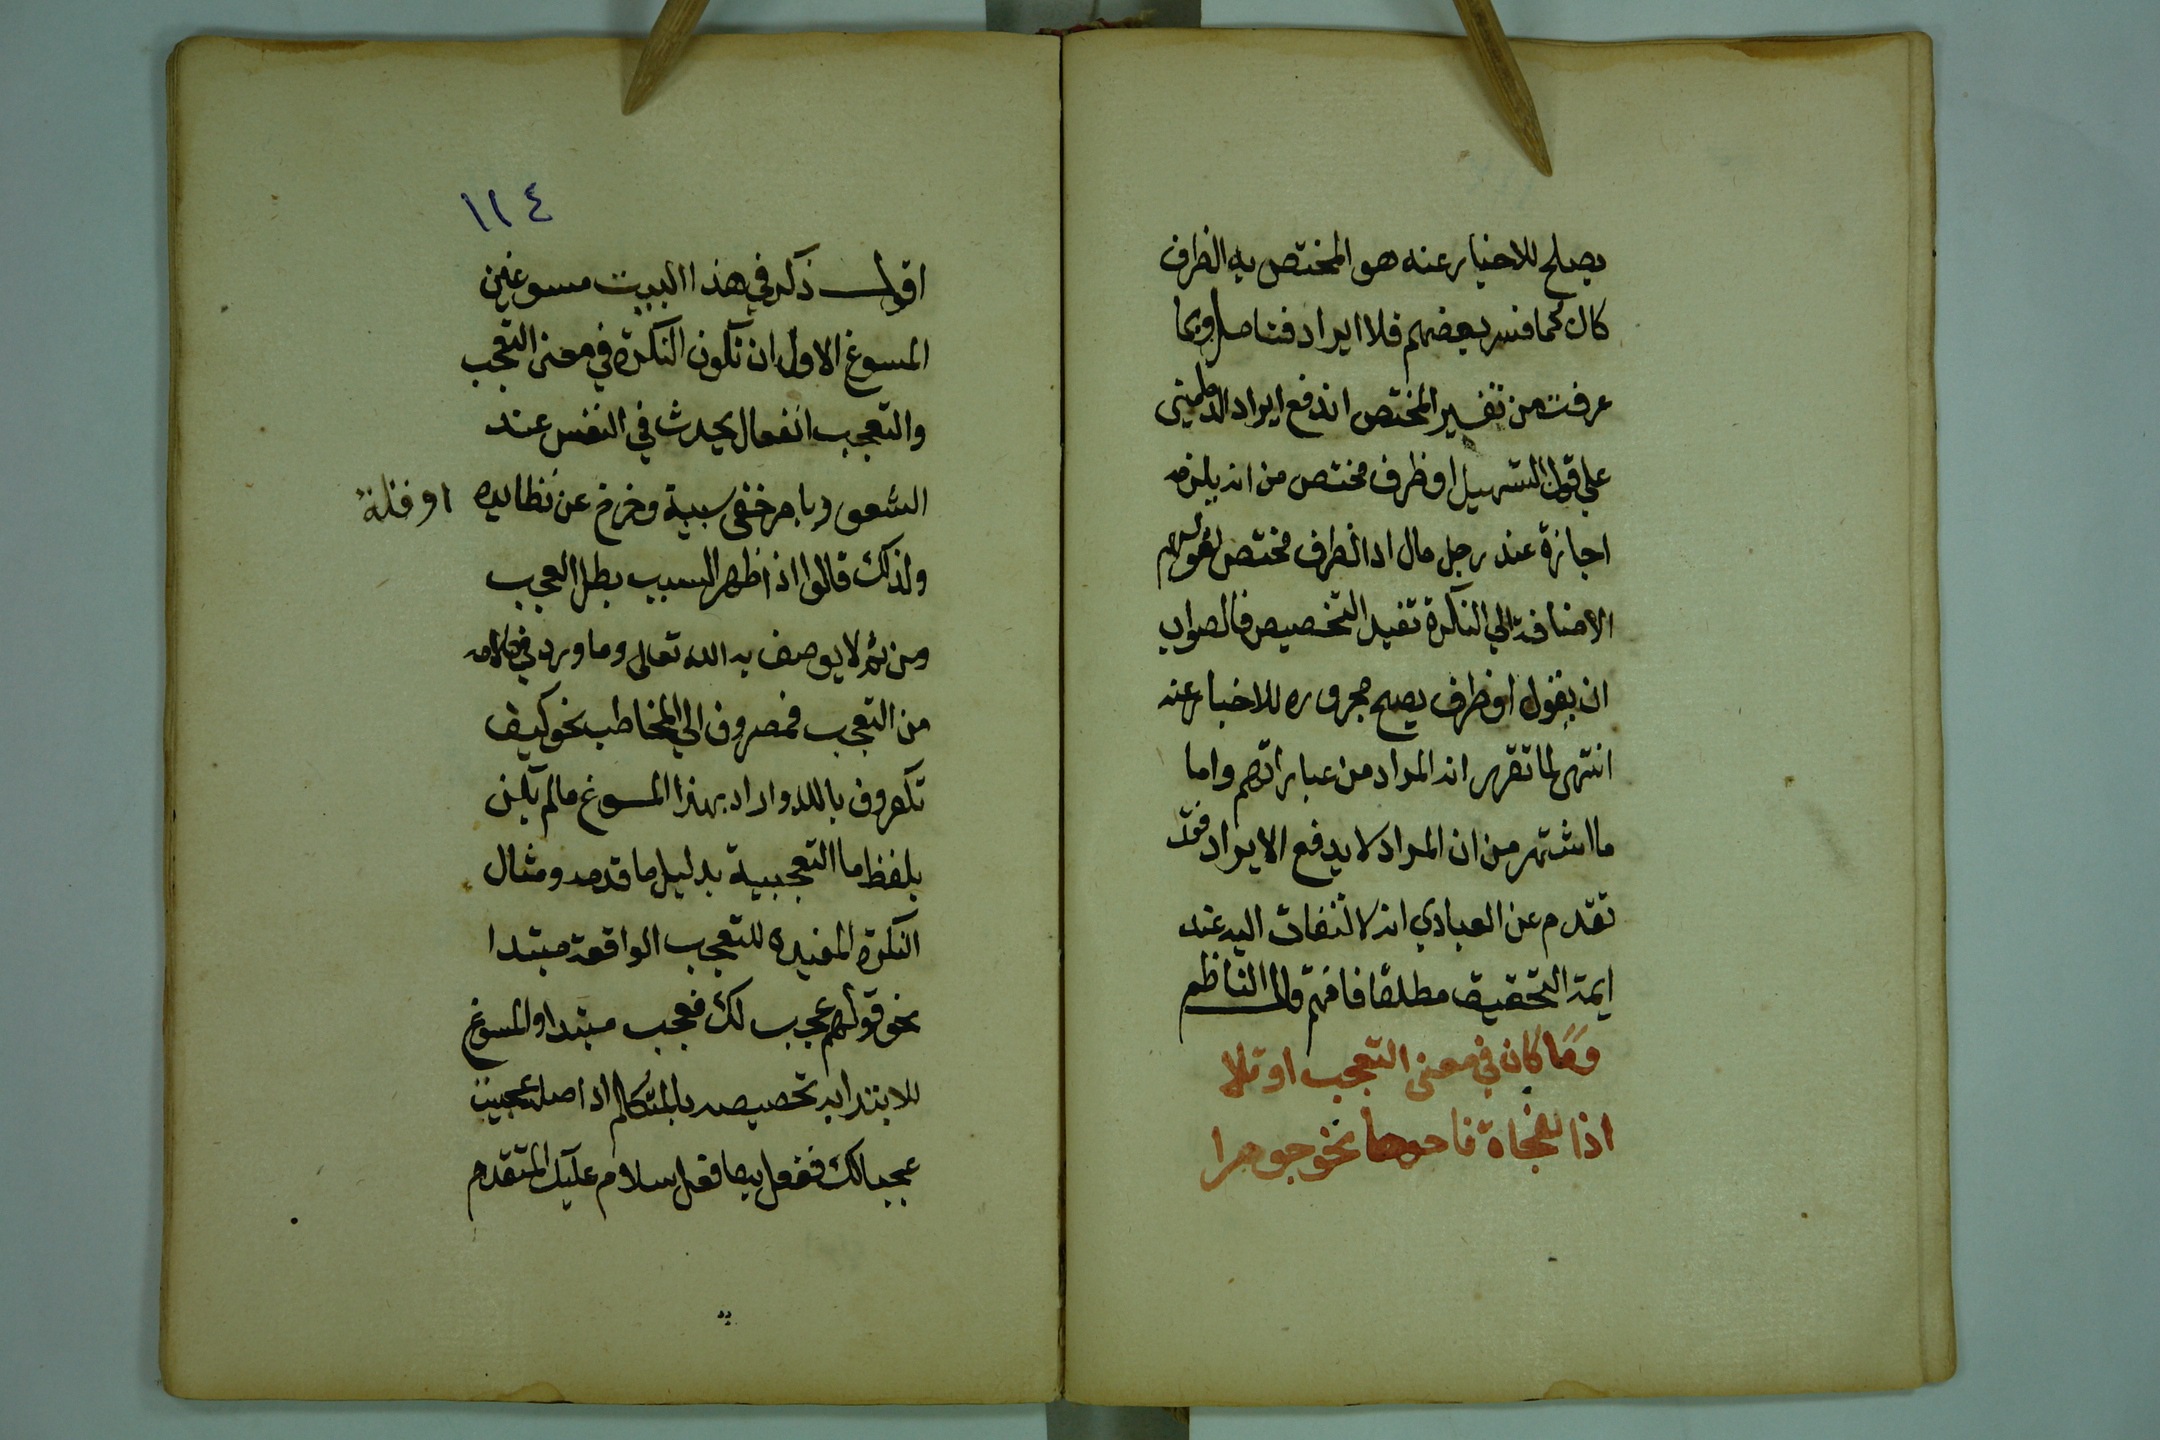 يصلح للاخبار عنه هو المختص به الظرف
كان كما فسر بعضهم فلا ايراد فتامل وبما
عرفت من تفسير المختص اندفع ايراد الدماميني
علي قول التسهيل او ظرف مختص من انه يلزمه
اجازة عند رجل مال اذ الظرف مختص لقولهم
الاضافة الي النكرة تفيد التخصيص فالصواب
ان يقول او ظرف يصح مجروره للاخبار عنه
انتهي لما تقرر انه المراد من عباراتهم واما
ما اشتهر من ان المراد لا يدفع الايراد فقد
تقدم عن العبادي انه لا التفات اليه عند
ايمة التحقيق مطلقا فافهم قال الناظم
وما كان في معني التعجب او تلا
اذا لفجاة فاحوها نحو جوهرا
١١٤
اقول ذكر في هذا البيت مسوغين
المسوغ الاول ان تكون النكرة في معني التعجب
والتعجب انفعال يحدث في النفس عند
الشعور بامر خفي سببه وخرج عن نظايره
او قلة
ولذلك قالوا اذا ظهر السبب بطل العجب
ومن ثم لا يوصف به الله تعالي وما ورد في كلامه
من التعجب فمصروف الي المخاطب نحو كيف
تكفرون بالله واراد بهذا المسوغ ما لم يكن
بلفظ ما التعجبية بدليل ما قدمه ومثال
النكرة المفيده للتعجب الواقعة مبتدا
نحو قولهم عجب لك فعجب مبتدا والمسوغ
للابتدا به تخصيصه بالمتكلم اذ اصله عجبت
عجبا لك ففعل بها فعل سلام عليك المتقدم